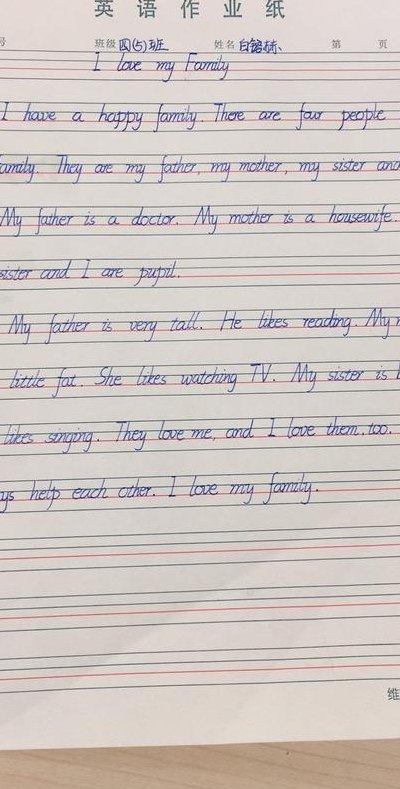 英语作业纸
号 班级 四(5)班 姓名 白 第 页
I love my Family
I have a happy family. There are four people
family. They are my father, my mother, my sister and
My father is a doctor. My mother is a housewife.
sister and I are pupil.
My father is very tall. He likes reading. My
little fat. She likes watching TV. My sister is
likes singing. They love me, and I love them.too.
ys help each other. I love my family.